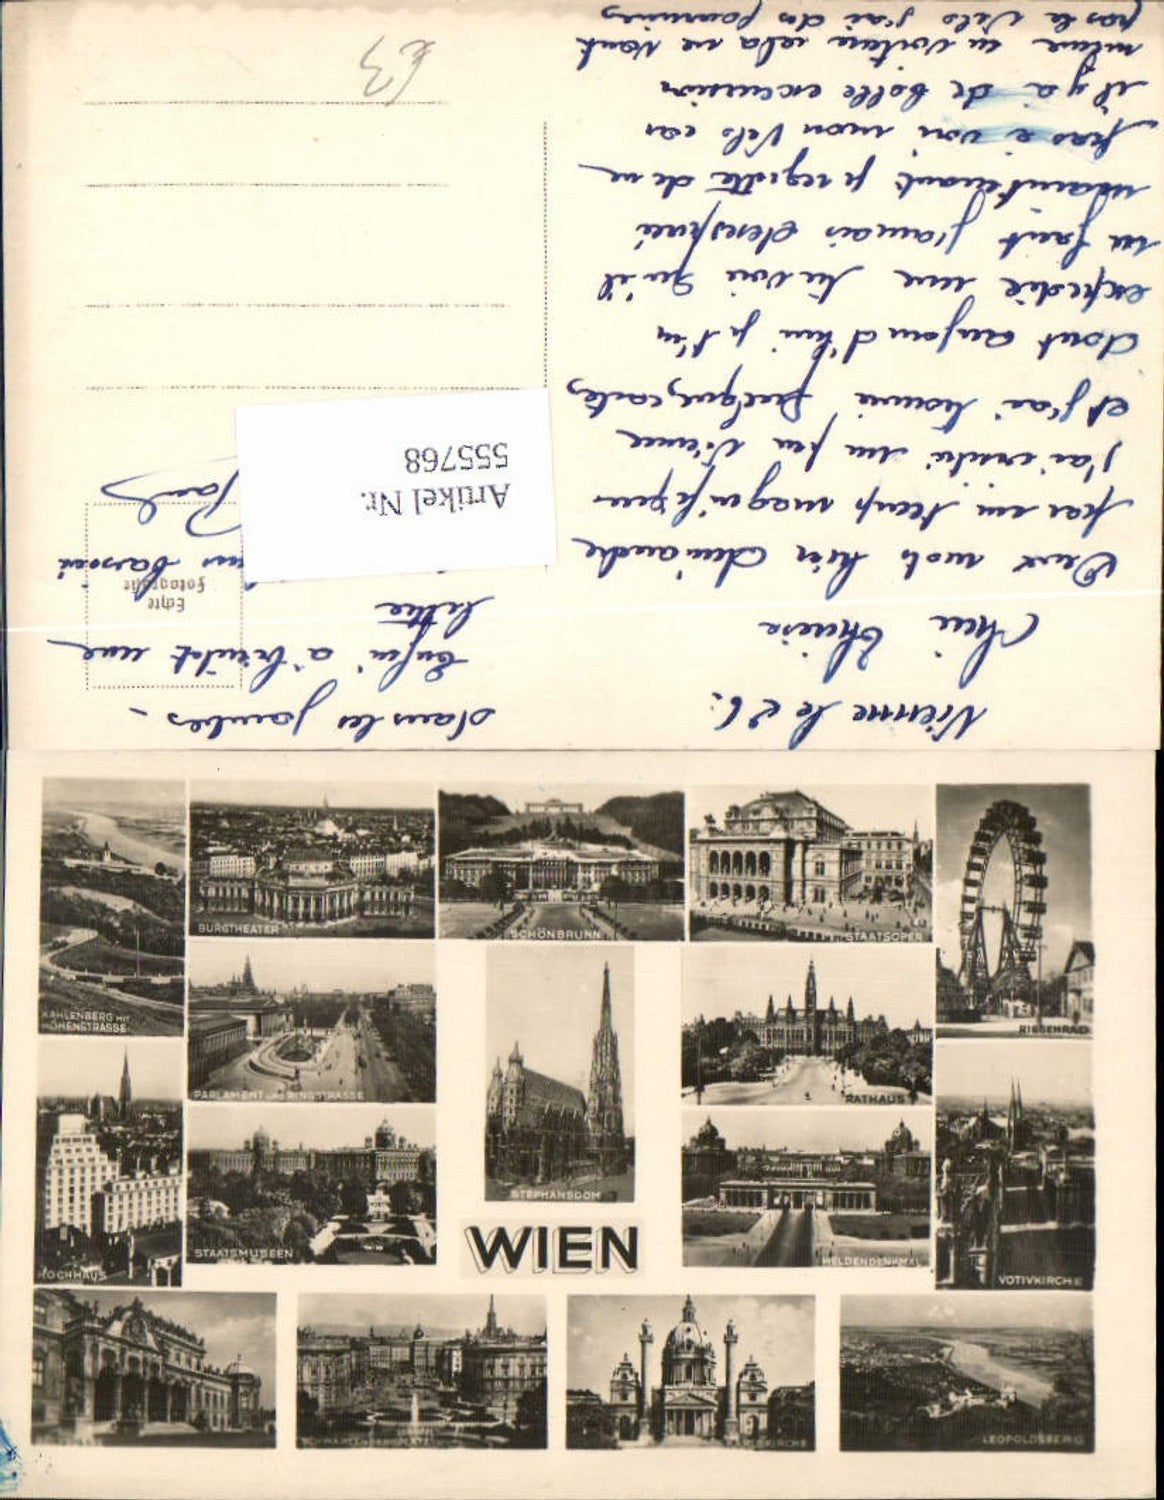 Vienne le 26.
Cheri Thérèse
Deux mots hier dimanche
par un temps magnifique
j'ai visité un peu Vienne
et j'ai trouvé quelques cartes
dont aujourd'hui je t'en
expedie une tu voi qu'il
ne faut jamais desesperé
maintenant je regrette de ne
pas avoir mon Velo car
il y a de belle excursion
même en voiture cela ne vaut
pas le Velo j'ai des fourmies
dans les jambes -
Enfin à bientôt une
lettre
Paul
Echte
Fotografie
Artikel Nr.
555768
€3
KAHLENBERG MIT
HÖHENSTRASSE
BURGTHEATER
SCHÖNBRUNN
STAATSOPER
RIESENRAD
PARLAMENT UND RINGSTRASSE
STEPHANSDOM
RATHAUS
HOCHHAUS
STAATSMUSEEN
WIEN
HELDENDENKMAL
VOTIVKIRCHE
SCHWARZENBERGPLATZ
KARLSKIRCHE
LEOPOLDSBERG